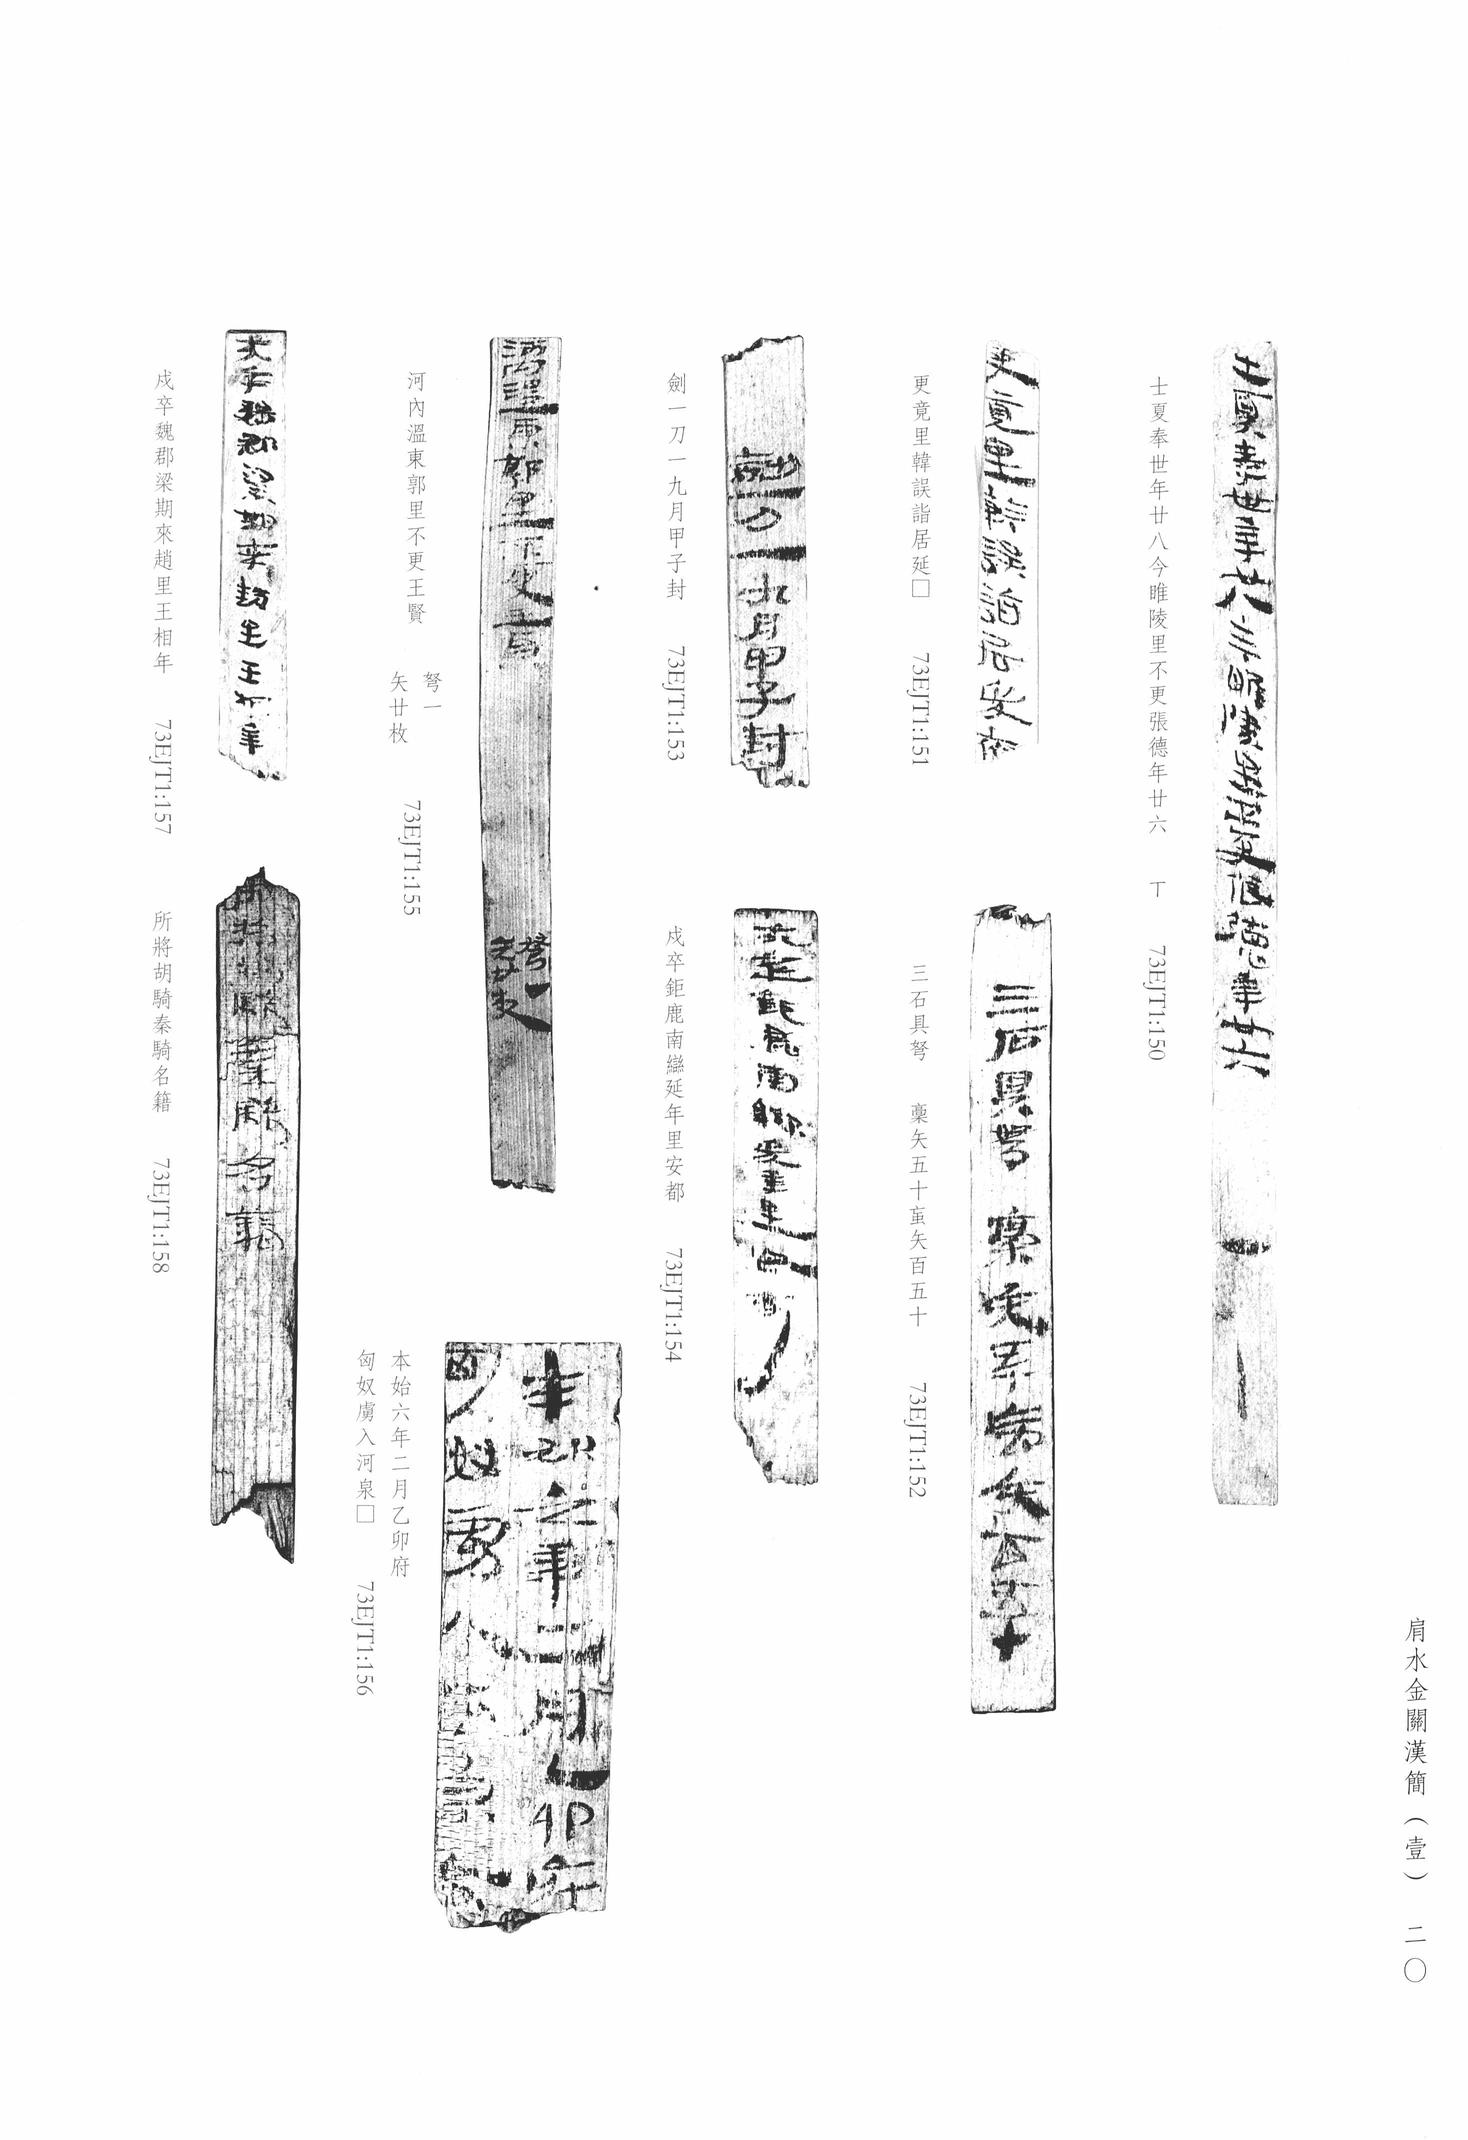 肩水金關漢簡（壹）　二〇
士夏奉世年廿八今睢陵里不更張德年廿六　丅　73EJT1:150
更竟里韓誤詣居延□　73EJT1:151
三石具弩　稾矢五十䖟矢百五十　73EJT1:152
劍一刀一九月甲子封　73EJT1:153
戍卒鉅鹿南䜌延年里安都　73EJT1:154
河內溫東郭里不更王賢
弩一
矢廿枚　73EJT1:155
本始六年二月乙卯府
匈奴虜入河泉□　73EJT1:156
戍卒魏郡梁期來趙里王相年　73EJT1:157
所將胡騎秦騎名籍　73EJT1:158